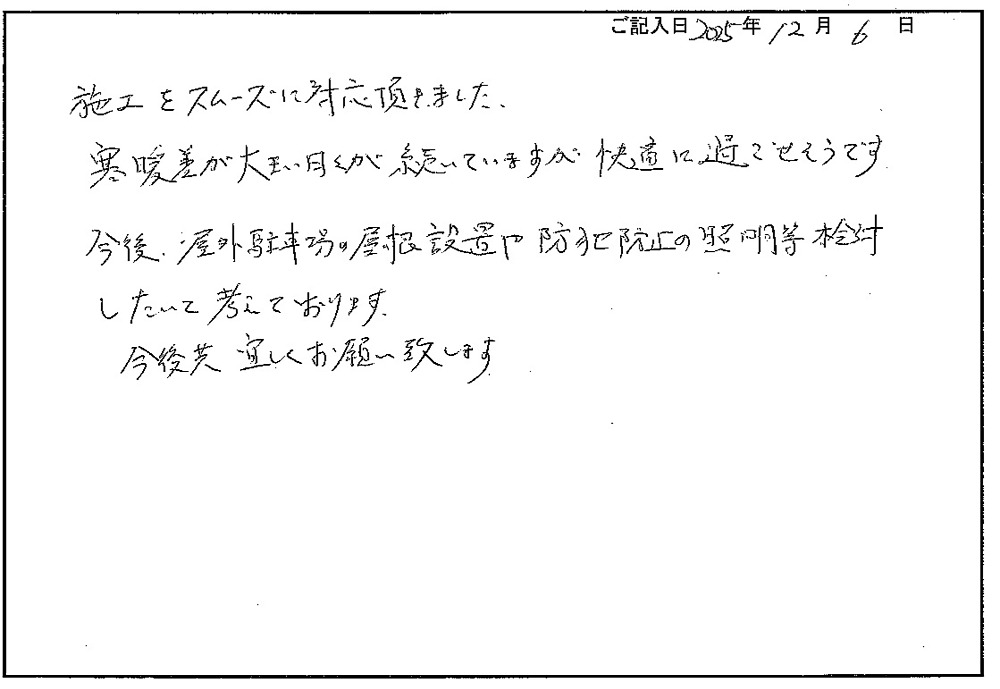 ご記入日 2025年 12月 6日
施工をスムーズに対応頂きました、
寒暖差が大きい日々が続いていますが快適に過ごせそうです
今後、屋外駐車場の屋根設置や防犯防止の照明等検討
したいて考えております。
今後共宜しくお願い致します